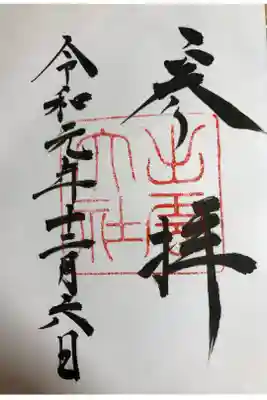 参拝
出雲
大社
令和元年十二月六日